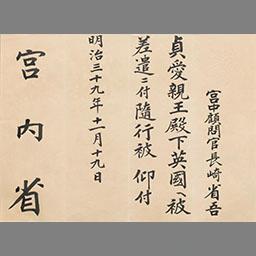 宮中顧問官長崎省吾
貞愛親王殿下英國ヘ被
差遣ニ付隨行被 仰付
明治三十九年十一月十九日
宮内省